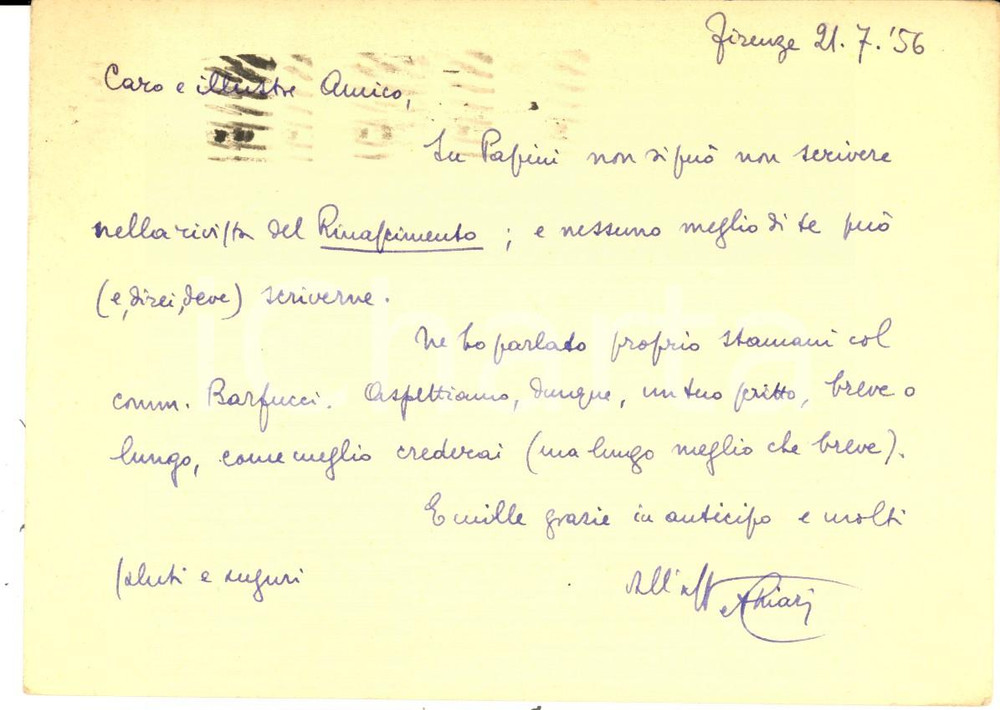 Firenze 21. 7. '56
Caro e illustre Amico,
Su Papini non si può non scrivere
nella rivista del Rinascimento ; e nessuno meglio di te può
(e, direi, deve) scriverne.
Ne ho parlato proprio stamani col
comm. Barfucci. Aspettiamo, dunque, un tuo scritto, breve o
lungo, come meglio crederai (ma lungo meglio che breve).
E mille grazie in anticipo e molti
saluti e auguri
Chiari
iCharta